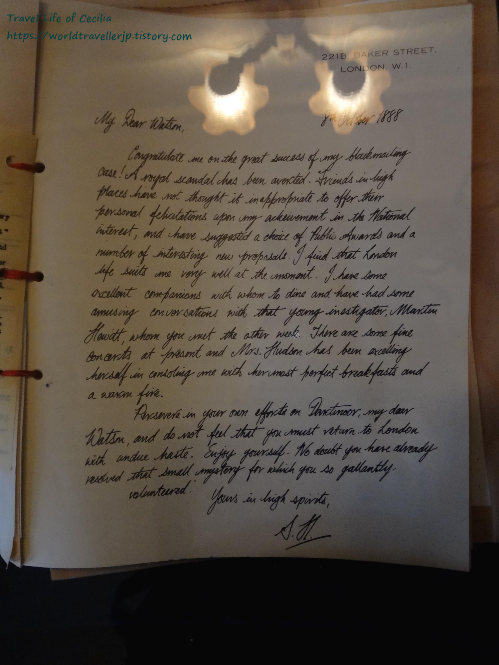 Travel Life of Cecilia
https://worldtravellerjp.tistory.com
221B BAKER STREET,
LONDON, W.1.
8th 1888
My Dear Watson,
Congratulate me on the great success of my blackmailing
case! A royal scandal has been averted. Friends in high
places have not thought it inappropriate to offer their
personal felicitations upon my achievement in the National
interest, and have suggested a choice of Public Awards and a
number of interesting new proposals. I find that London
life suits me very well at the moment. I have some
excellent companions with whom to dine and have had some
amusing conversations with that young investigator, Martin
Hewitt, whom you met the other week. There are some fine
concerts at present and Mrs. Hudson has been excelling
herself in consoling me with her most perfect breakfasts and
a warm fire.
Persevere in your own efforts on Dartmoor, my dear
Watson, and do not feel that you must return to London
with undue haste. Enjoy yourself. No doubt you have already
resolved that small mystery for which you so gallantly
volunteered.
Yours in high spirits,
S.H.